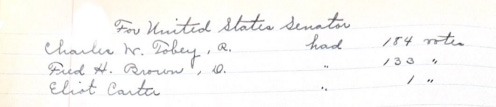 For United States Senator
Charles W. Tobey, R. had 184 votes
Fred H. Brown, D. " 133 "
Eliot Carter " 1 "